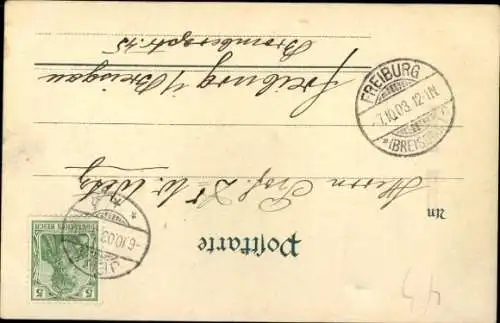 Postkarte
An
Herrn Prof. Dr W.
Freiburg i/Breisgau
FREIBURG
-7.10.03. 12-1N.
*(BREISGAU)
-6.10.03
DEUTSCHES REICH
5
5
45